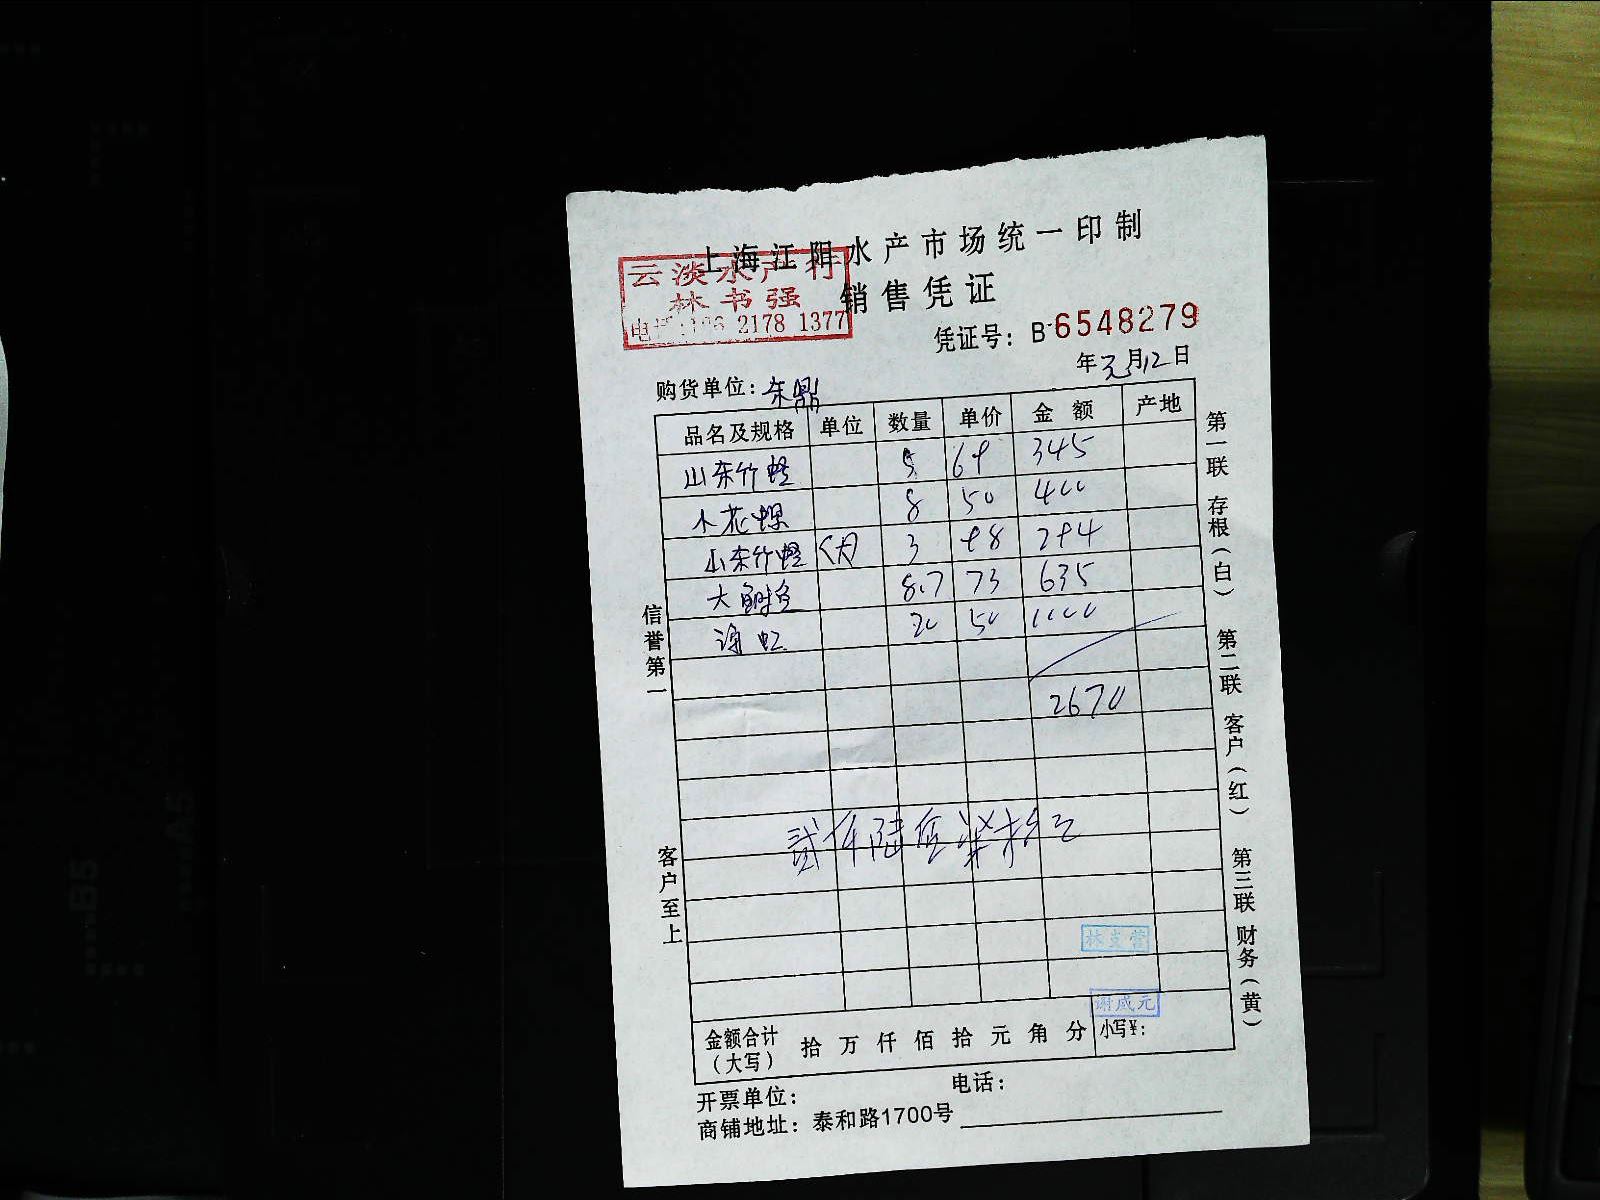 上海江阳水产市场统一印制
云淡水产行
林书强
2178 1377
销售凭证
凭证号: B 6548279
年元月12日
购货单位: 东鼎
品名及规格 单位 数量 单价 金额 产地
山东竹蛏 5 69 345
小花螺 8 50 400
山东竹蛏 (大) 3 98 294
大鲥鱼 8.7 73 635
20 50 1000
2670
贰仟陆佰柒拾元
谢咸元
金额合计(大写) 拾 万 仟 佰 拾 元 角 分 小写¥:
开票单位: 电话:
商铺地址: 泰和路1700号
信誉第一
客户至上
第一联 存根(白)
第二联 客户(红)
第三联 财务(黄)
B5
A5